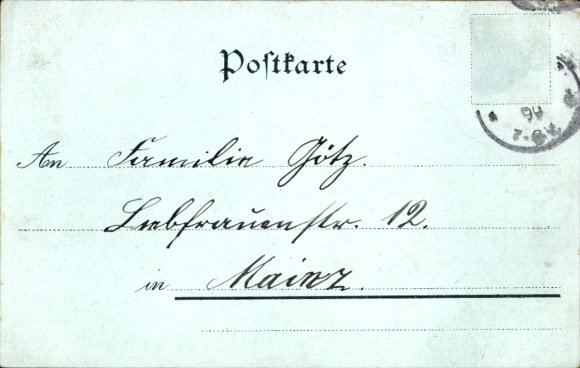 Postkarte
99
An Familie Götz.
Liebfrauenstr. 12.
in Mainz.